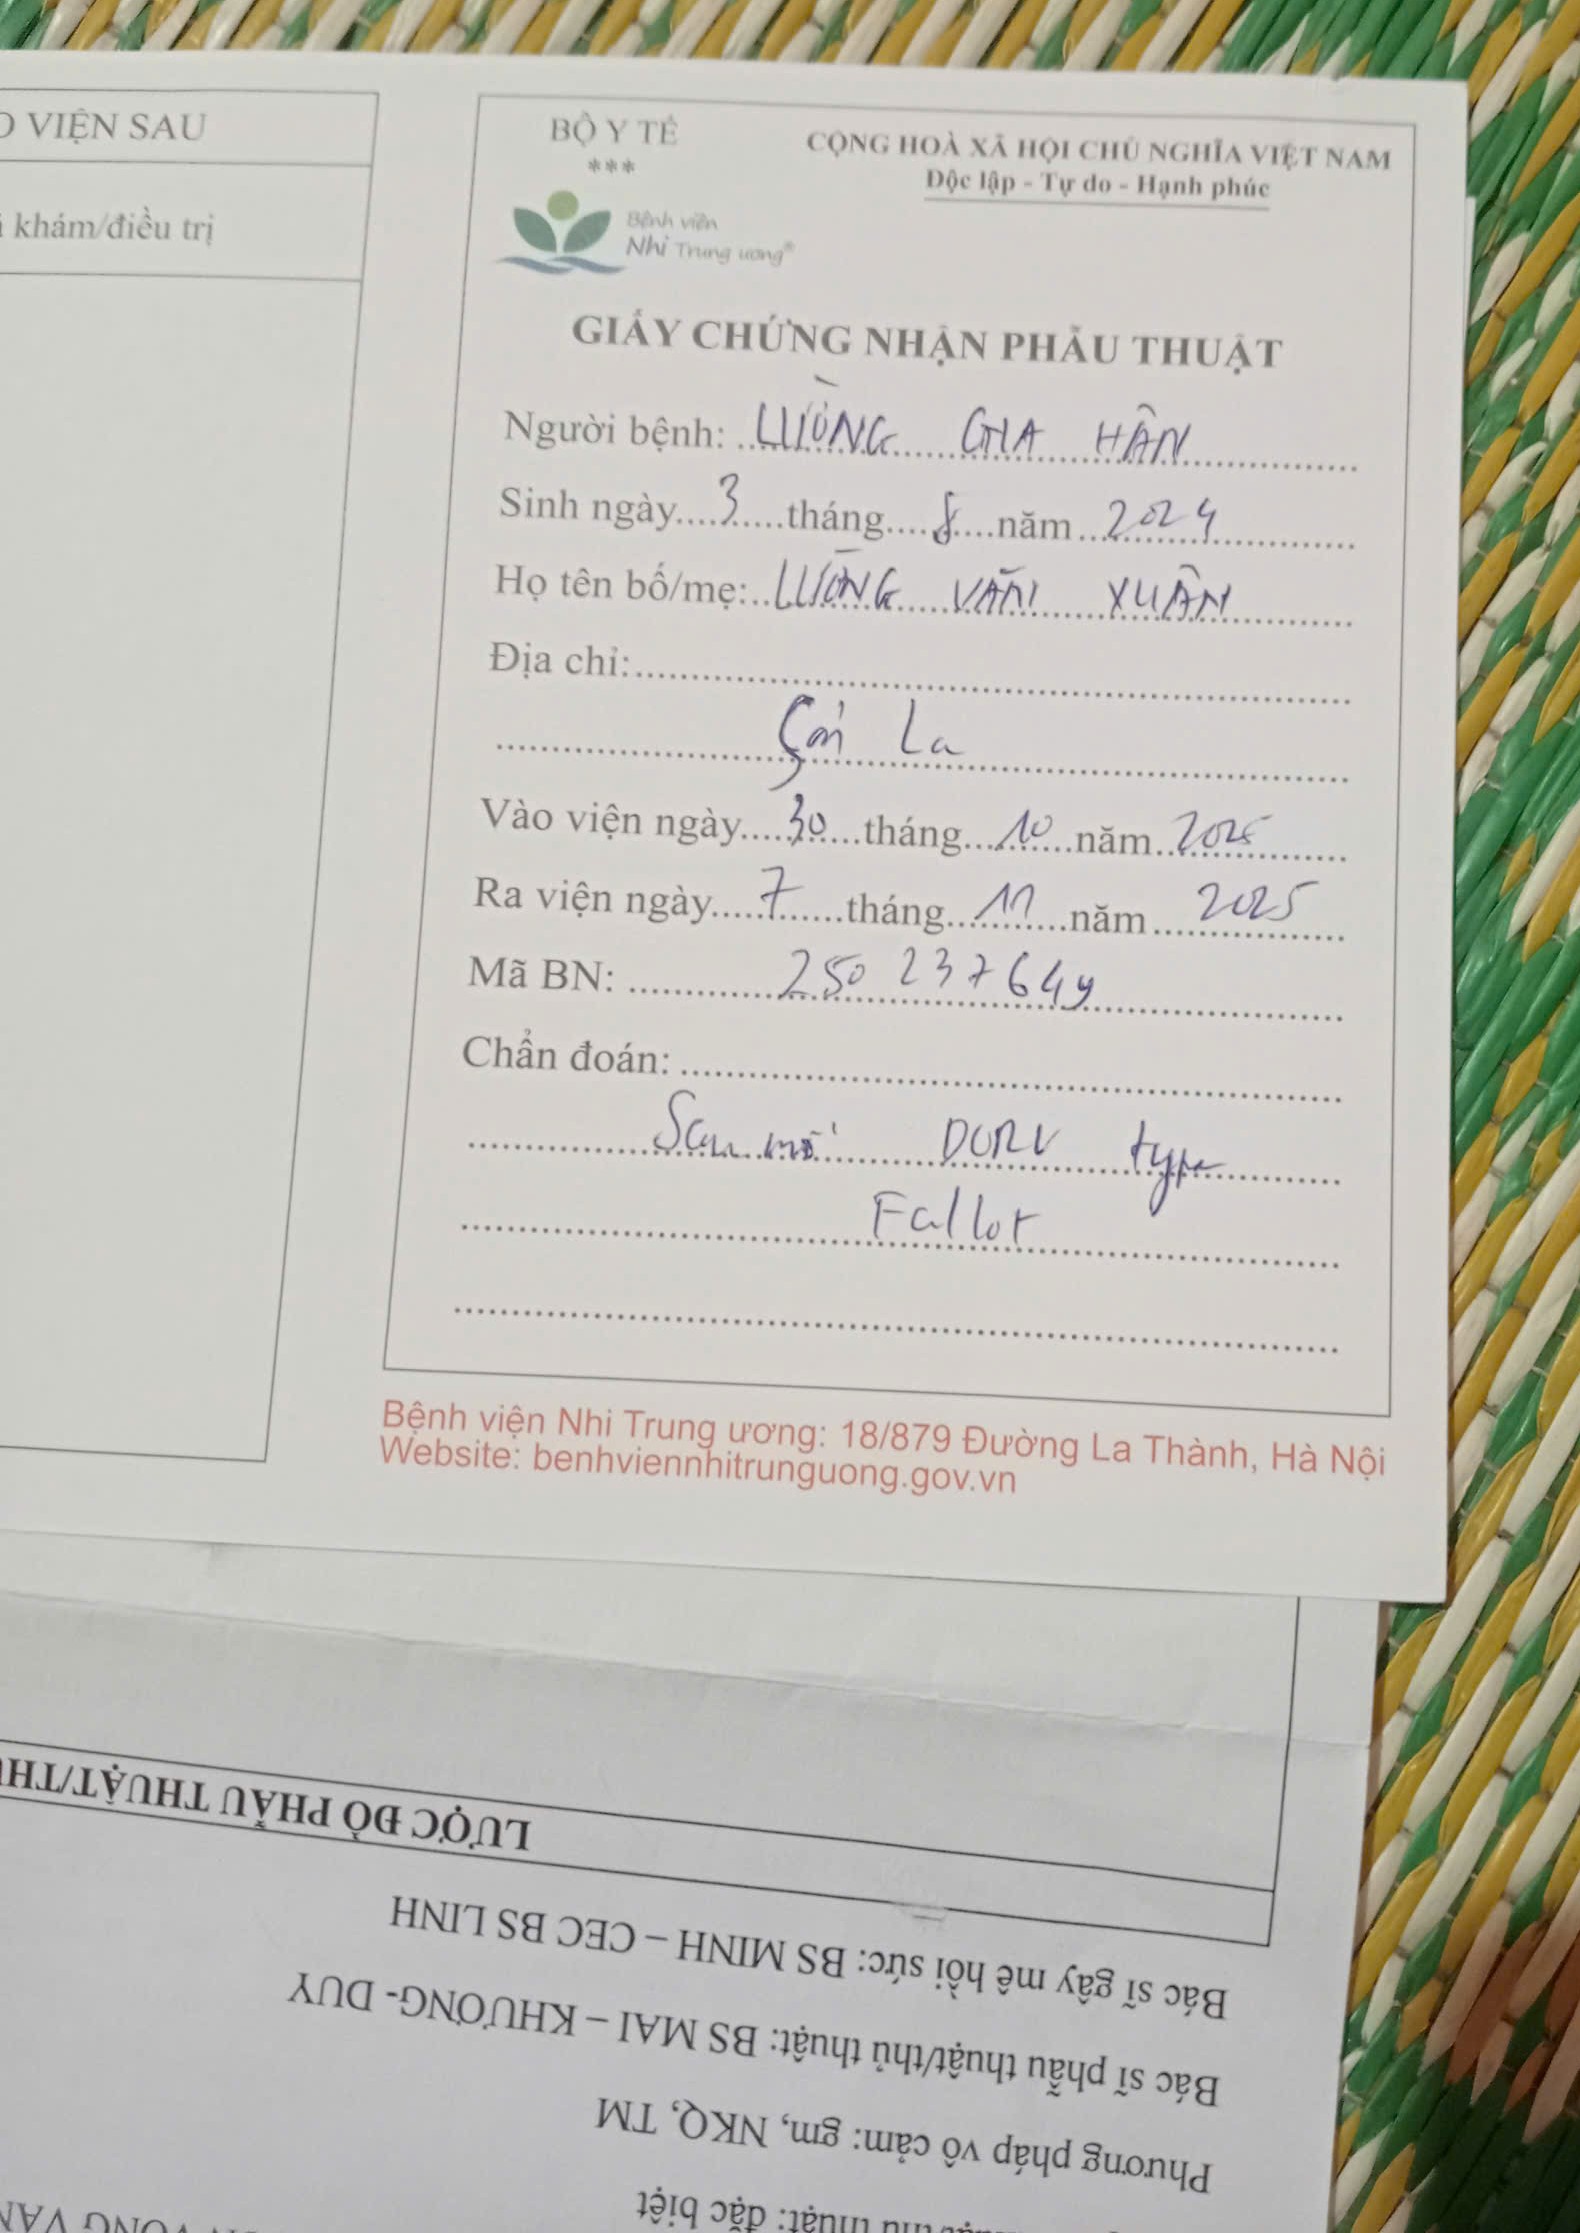 O VIỆN SAU
khám/điều trị
BỘ Y TẾ
***
Bệnh viện
Nhi Trung ương®
CỘNG HOÀ XÃ HỘI CHỦ NGHĨA VIỆT NAM
Độc lập - Tự do - Hạnh phúc
GIẤY CHỨNG NHẬN PHẪU THUẬT
Người bệnh: LƯỜNG GIA HÂN
Sinh ngày 3 tháng 8 năm 2024
Họ tên bố/mẹ: LƯỜNG VĂN XUÂN
Địa chỉ:
Sơn La
Vào viện ngày 30 tháng 10 năm 2025
Ra viện ngày 7 tháng 11 năm 2025
Mã BN: 250237649
Chẩn đoán:
Sau mổ DORV type
Fallot
Bệnh viện Nhi Trung ương: 18/879 Đường La Thành, Hà Nội
Website: benhviennhitrunguong.gov.vn
thuật: đặc biệt
Phương pháp vô cảm: gm, NKQ, TM
Bác sĩ phẫu thuật/thủ thuật: BS MAI – KHƯƠNG- DUY
Bác sĩ gây mê hồi sức: BS MINH – CEC BS LINH
LƯỢC ĐỒ PHẪU THUẬT/TH